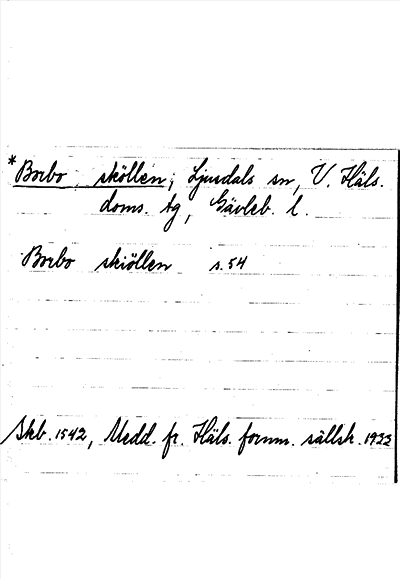 *Borbo sköllen, Ljusdals sn, V. Häls.
doms. tg, Gävleb. l.
Borbo skiöllen s. 54
Skb. 1542, Medd. fr. Häls. fornm. sällsk. 1922